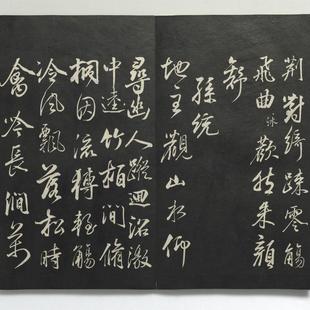 荊對綺疎零觴
飛曲津歡然朱顏
舒
孫統
地主觀山水仰
尋幽人蹤迴沼激
中逵竹柏間脩
桐因流轉輕觴
冷風飄落松時
禽吟長澗萬